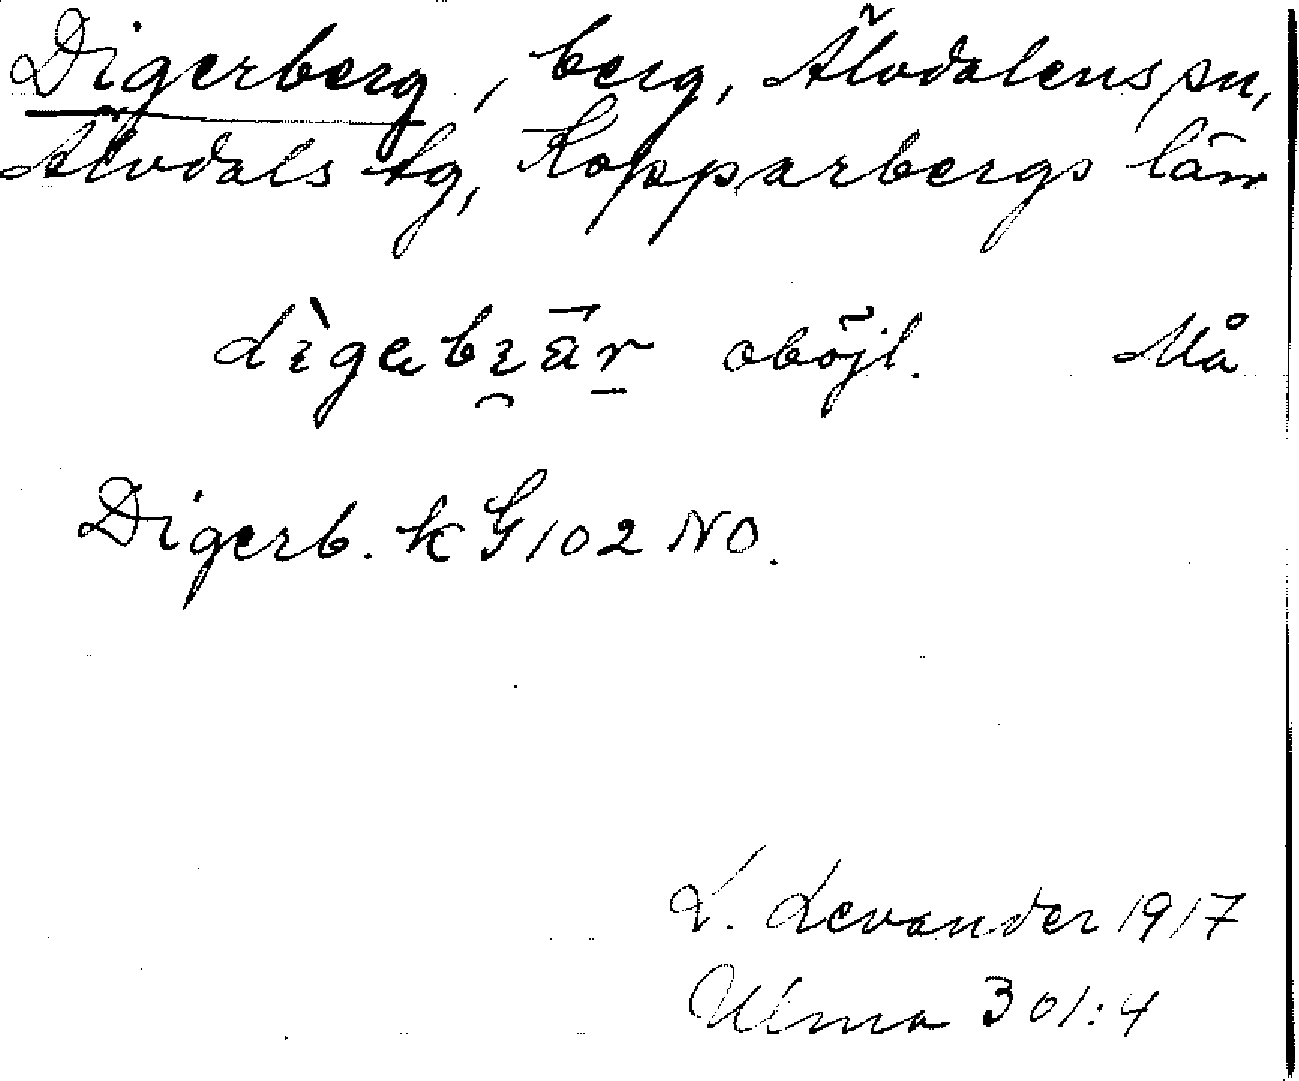 Digerberg, berg, Älvdalens sn,
Älvdals tg, Kopparbergs län
oböjl. Må
Digerb. k G 102 NO.
L. Levander 1917
Ulma 301:4